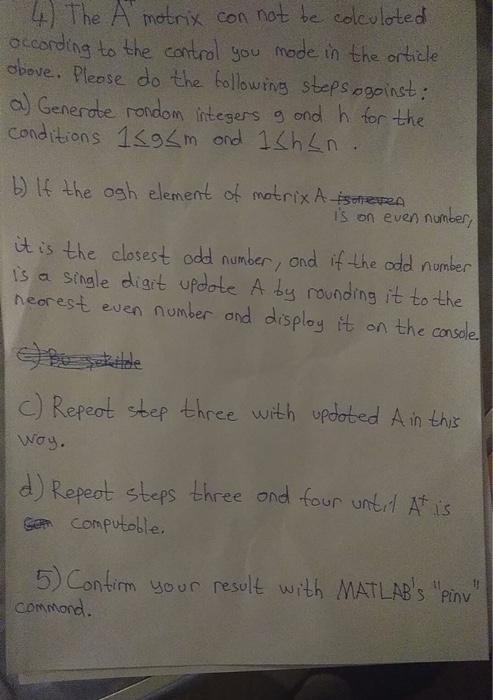 4) The A⁺ matrix can not be calculated
according to the control you made in the article
above. Please do the following steps against:
a) Generate random integers g and h for the
conditions 1≤g≤m and 1≤h≤n.
b) If the agh element of matrix A is on even
is an even number,
it is the closest odd number, and if the odd number
is a single digit update A by rounding it to the
nearest even number and display it on the console.
c) Repeat step three with updated A in this
way.
d) Repeat steps three and four until A⁺ is
computable.
5) Confirm your result with MATLAB's "pinv"
command.